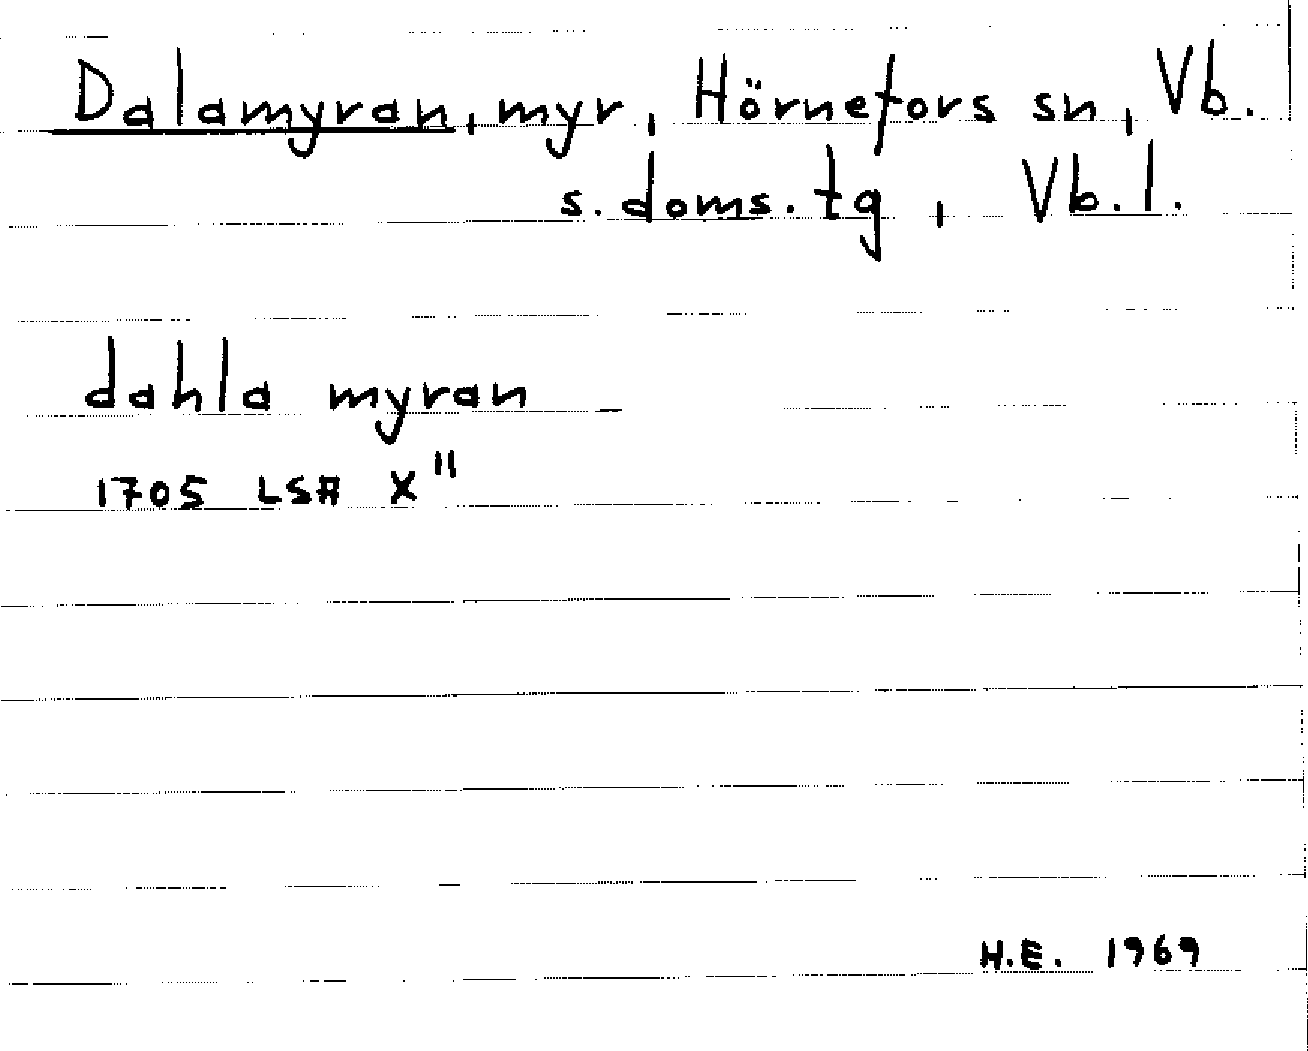 Dalamyran, myr, Hörnefors sn, Vb.
s. doms. tg, Vb. l.
dahla myran
1705 LSA X"
H.E. 1969